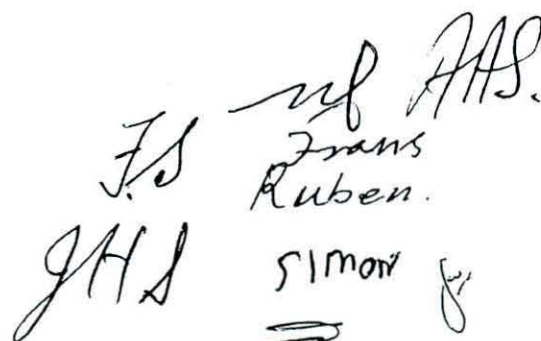 AAS.
F.S Frans
Ruben.
JHS SIMON